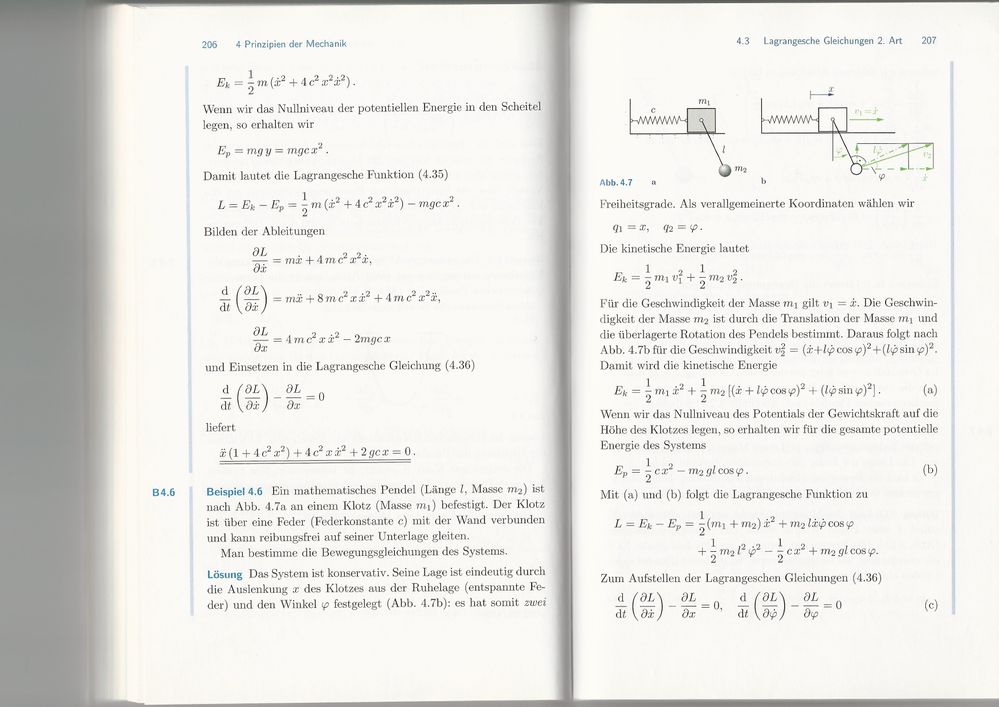 206 4 Prinzipien der Mechanik
E_k = 1/2 m (ẋ² + 4 c² x² ẋ²) .
Wenn wir das Nullniveau der potentiellen Energie in den Scheitel
legen, so erhalten wir
E_p = m g y = m g c x² .
Damit lautet die Lagrangesche Funktion (4.35)
L = E_k − E_p = 1/2 m (ẋ² + 4 c² x² ẋ²) − m g c x² .
Bilden der Ableitungen
∂L/∂ẋ = m ẋ + 4 m c² x² ẋ,
d/dt (∂L/∂ẋ) = m ẍ + 8 m c² x ẋ² + 4 m c² x² ẍ,
∂L/∂x = 4 m c² x ẋ² − 2 m g c x
und Einsetzen in die Lagrangesche Gleichung (4.36)
d/dt (∂L/∂ẋ) − ∂L/∂x = 0
liefert
ẍ (1 + 4 c² x²) + 4 c² x ẋ² + 2 g c x = 0 .
B4.6 Beispiel 4.6 Ein mathematisches Pendel (Länge l, Masse m₂) ist
nach Abb. 4.7a an einem Klotz (Masse m₁) befestigt. Der Klotz
ist über eine Feder (Federkonstante c) mit der Wand verbunden
und kann reibungsfrei auf seiner Unterlage gleiten.
Man bestimme die Bewegungsgleichungen des Systems.
Lösung Das System ist konservativ. Seine Lage ist eindeutig durch
die Auslenkung x des Klotzes aus der Ruhelage (entspannte Fe-
der) und den Winkel φ festgelegt (Abb. 4.7b): es hat somit zwei
4.3 Lagrangesche Gleichungen 2. Art 207
c
m₁
l
m₂
x
v₁ = ẋ
φ
lφ̇
v₂
φ
ẋ
Abb. 4.7 a b
Freiheitsgrade. Als verallgemeinerte Koordinaten wählen wir
q₁ = x, q₂ = φ .
Die kinetische Energie lautet
E_k = 1/2 m₁ v₁² + 1/2 m₂ v₂² .
Für die Geschwindigkeit der Masse m₁ gilt v₁ = ẋ. Die Geschwin-
digkeit der Masse m₂ ist durch die Translation der Masse m₁ und
die überlagerte Rotation des Pendels bestimmt. Daraus folgt nach
Abb. 4.7b für die Geschwindigkeit v₂² = (ẋ+lφ̇ cos φ)²+(lφ̇ sin φ)².
Damit wird die kinetische Energie
E_k = 1/2 m₁ ẋ² + 1/2 m₂ [(ẋ + lφ̇ cos φ)² + (lφ̇ sin φ)²] . (a)
Wenn wir das Nullniveau des Potentials der Gewichtskraft auf die
Höhe des Klotzes legen, so erhalten wir für die gesamte potentielle
Energie des Systems
E_p = 1/2 c x² − m₂ g l cos φ . (b)
Mit (a) und (b) folgt die Lagrangesche Funktion zu
L = E_k − E_p = 1/2 (m₁ + m₂) ẋ² + m₂ l ẋ φ̇ cos φ
+ 1/2 m₂ l² φ̇² − 1/2 c x² + m₂ g l cos φ.
Zum Aufstellen der Lagrangeschen Gleichungen (4.36)
d/dt (∂L/∂ẋ) − ∂L/∂x = 0, d/dt (∂L/∂φ̇) − ∂L/∂φ = 0 (c)